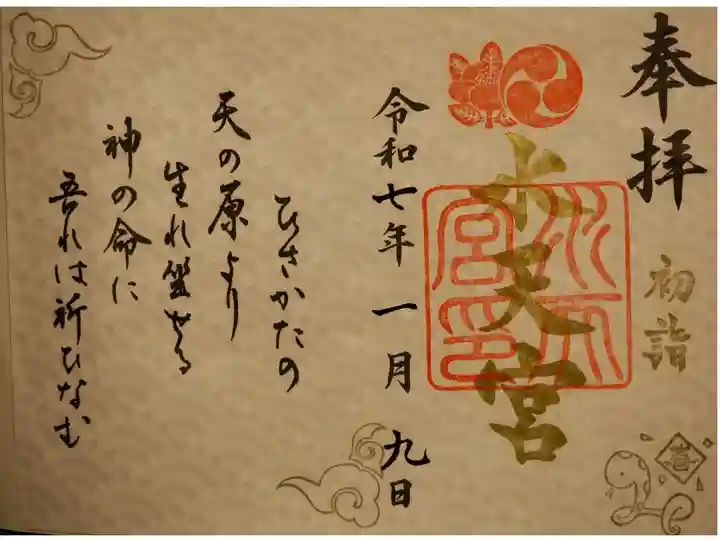 奉拝
初詣
水天宮
水天宮印
令和七年 一月 九日
ひさかたの
天の原より
生れ坐せる
神の命に
吾れは祈ひなむ
喜